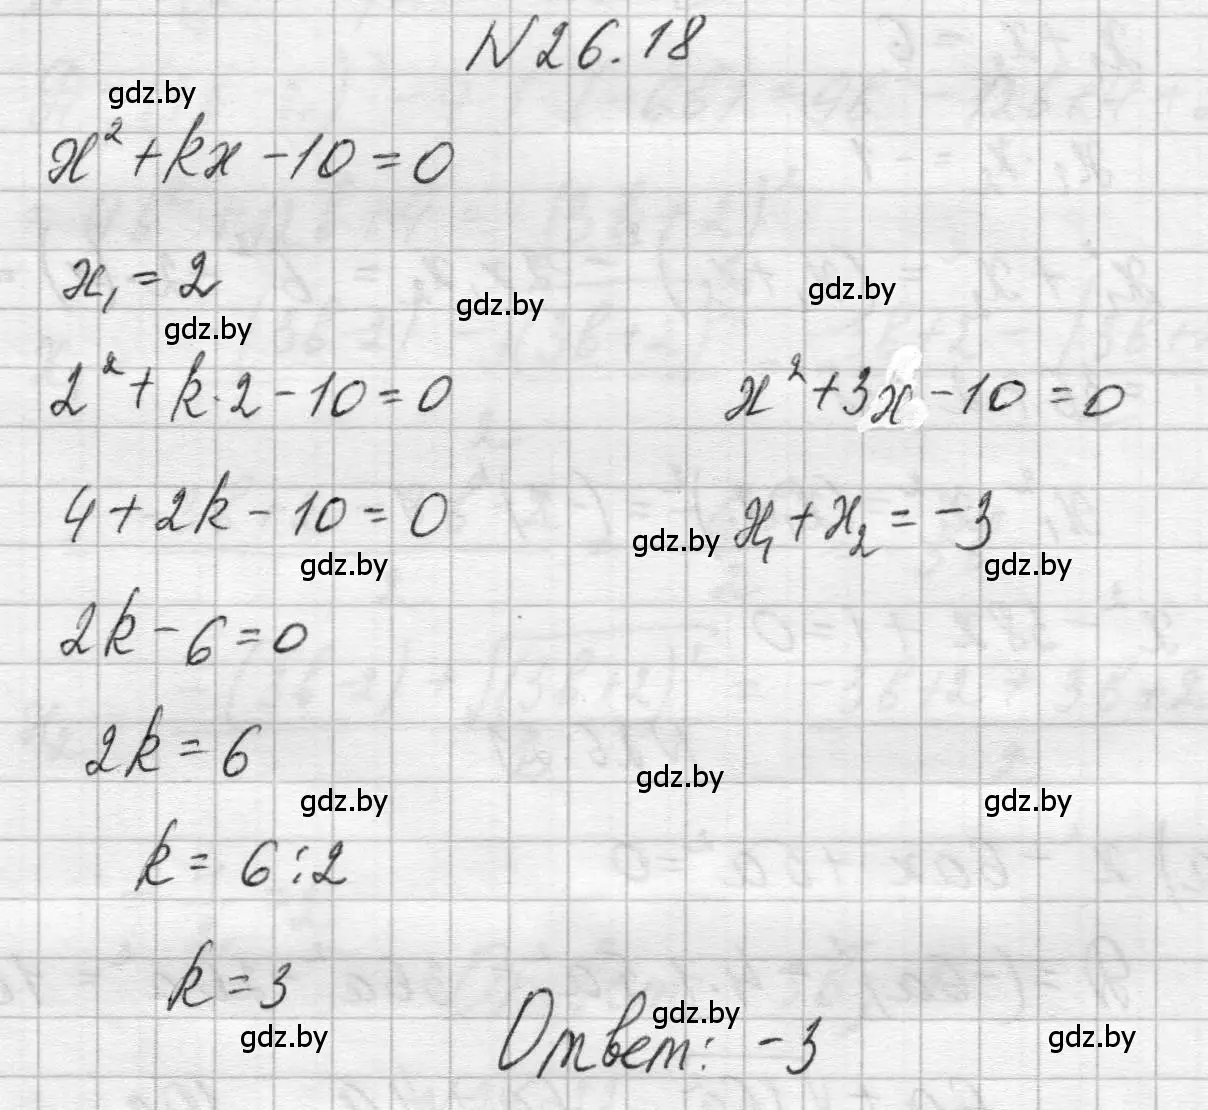 N 26.18
gdz.by
x² + kx - 10 = 0
x₁ = 2
gdz.by
gdz.by
gdz.by
2² + k · 2 - 10 = 0
4 + 2k - 10 = 0
gdz.by
2k - 6 = 0
2k = 6
gdz.by
k = 6 : 2
k = 3
gdz.by
x² + 3x - 10 = 0
x₁ + x₂ = -3
gdz.by
gdz.by
gdz.by
gdz.by
Ответ: -3
gdz.by
gdz.by